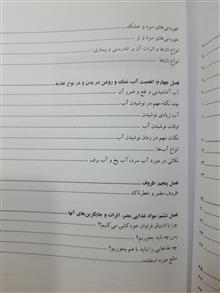 خوردنی‌های سرد و خشک
خوردنی‌های سرد و تر
انواع نان‌ها و اثرات آن بر تندرستی و بیماری:
انواع نان‌ها
فصل چهارم: اهمیت آب، نمک، و روغن در بدن و در نوع تغذیه
آب آشامیدنی و نفع و ضرر آن
چند نکته مهم در نوشیدن آب
آب زیادی نوشیدن
اوقات نوشیدن آب
نکات مهم در زمان نوشیدن آب
انواع آب‌ها
نکاتی در مورد آب سرد، آب یخ و آب برف
فصل پنجم: ظروف
ظروف مضر و خطرناک
فصل ششم: مواد غذایی مضر، اثرات و جایگزین‌های آنها
چرا با اشتیاق فراوان خودکشی می‌کنیم؟!
پس چه باید بخوریم؟
چه غذاهایی را نباید با هم بخوریم؟
منابع مورد استفاده: